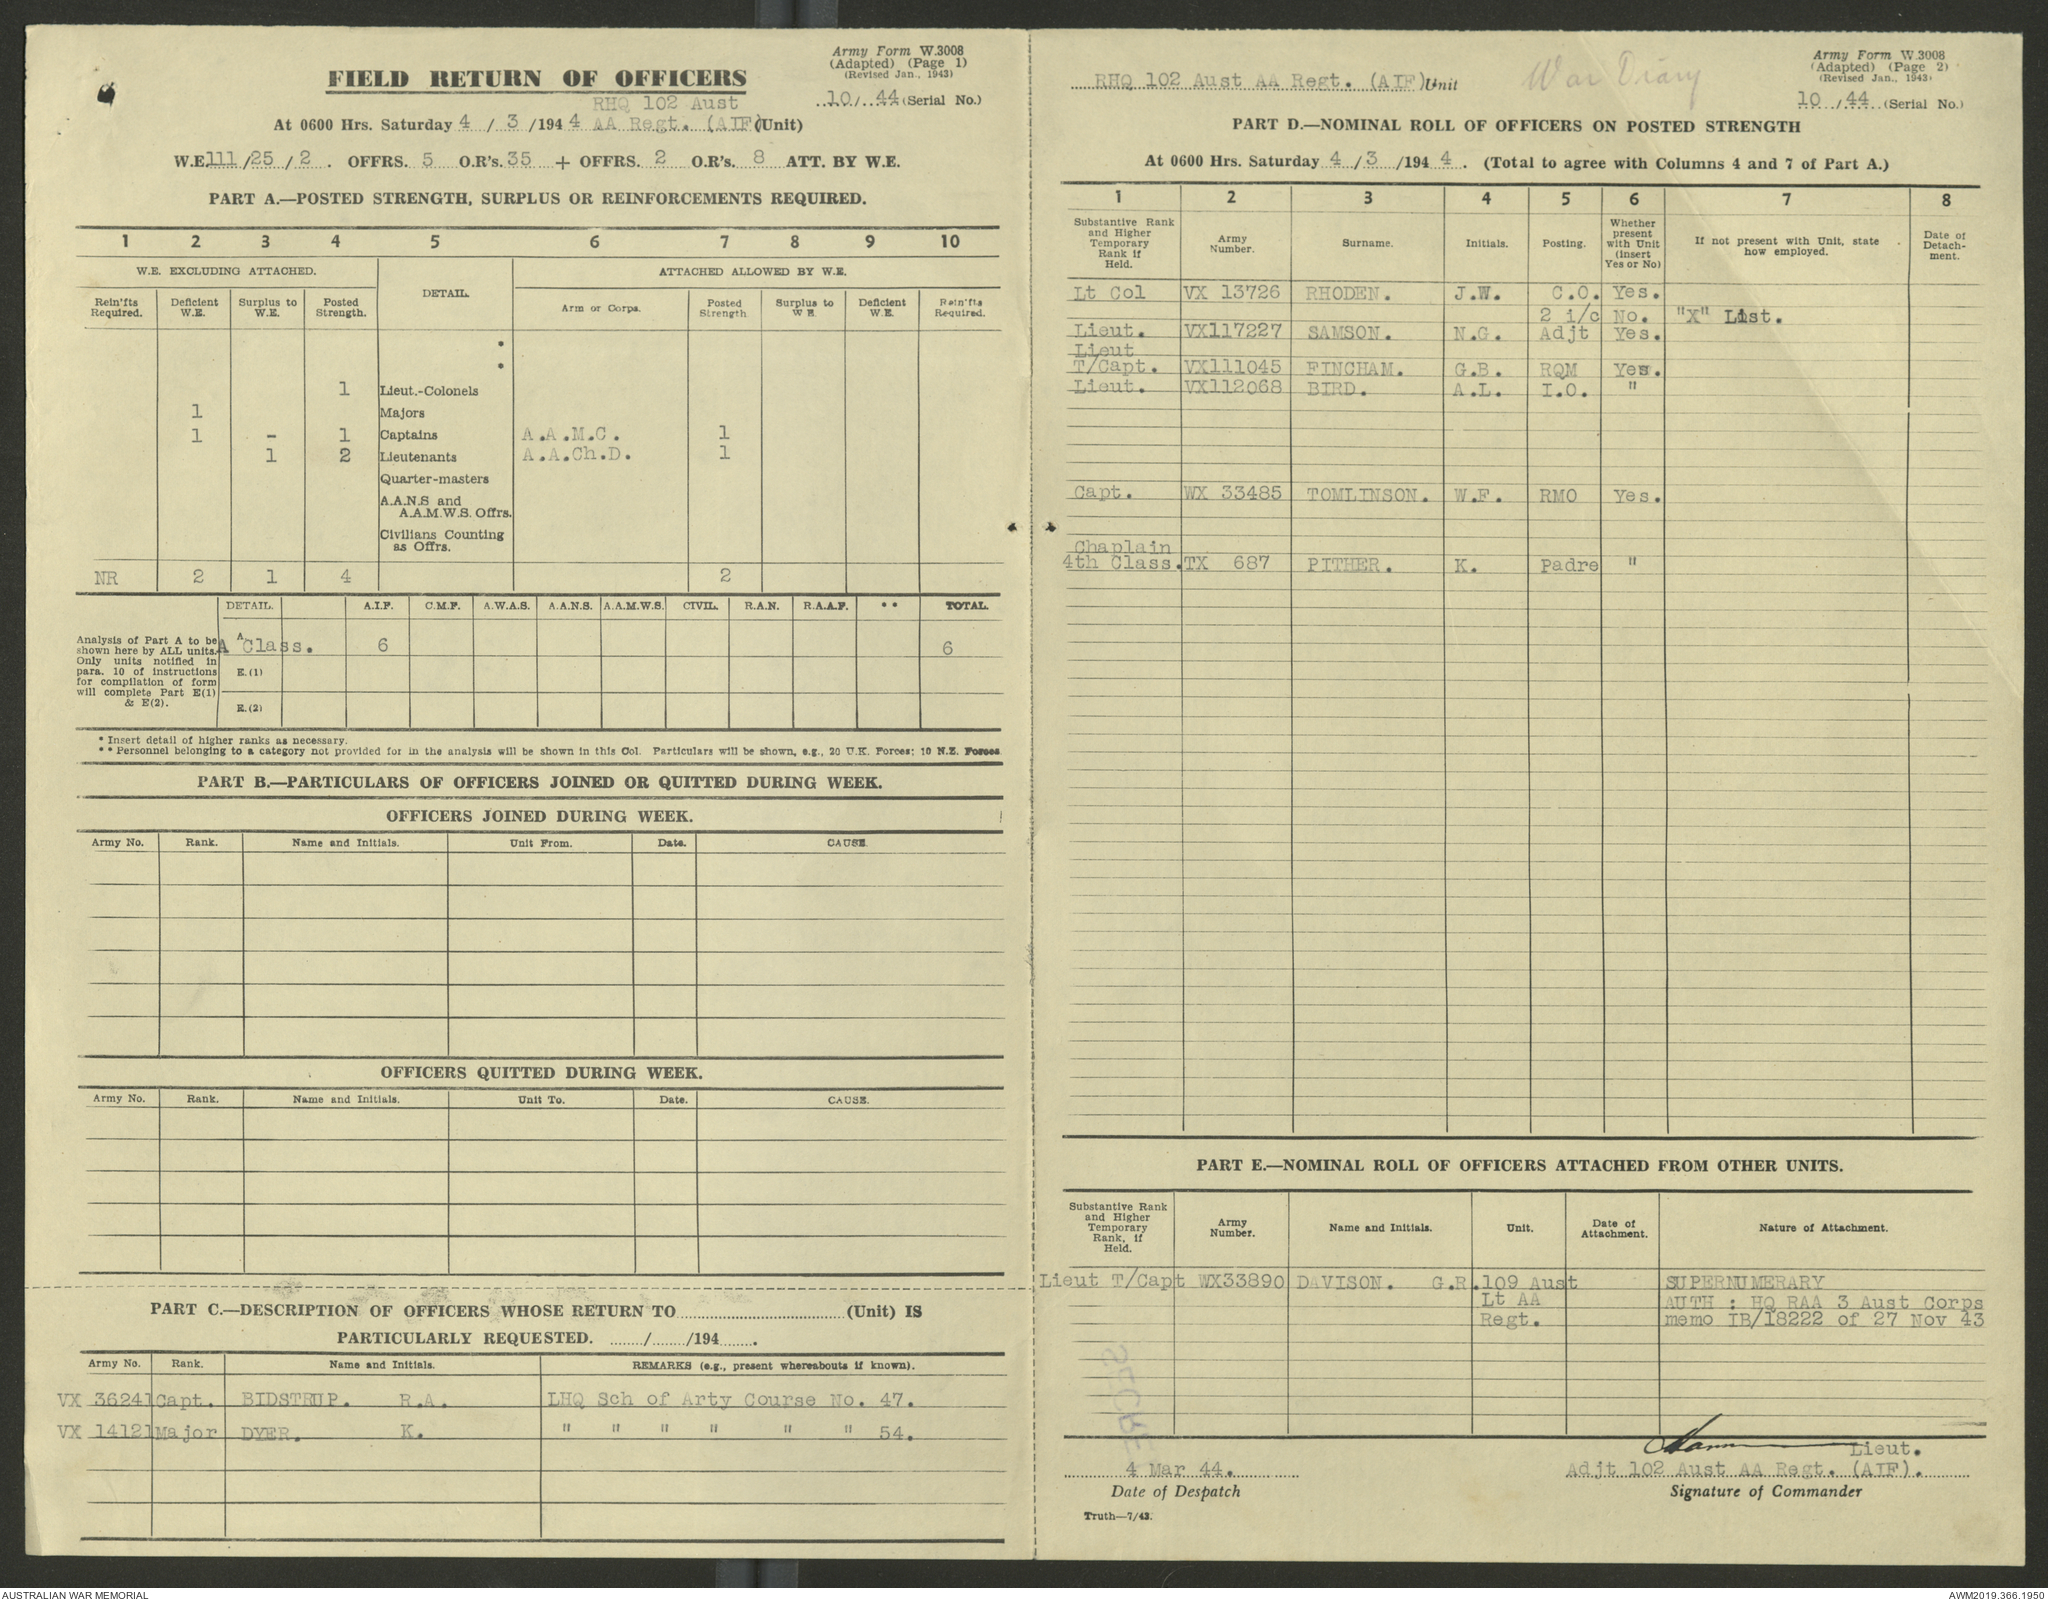 Army Form W.3008
(Adapted) (Page 1)
(Revised Jan., 1943)
FIELD RETURN OF OFFICERS
RHQ 102 Aust
10/ 44 (Serial No.)
At 0600 Hrs. Saturday 4 / 3 /194 4 AA Regt. (AIF) (Unit)
W.E. 111 /25 /2 . OFFRS. 5 O.R's. 35 + OFFRS. 2 O.R's. 8 ATT. BY W.E.
PART A.—POSTED STRENGTH, SURPLUS OR REINFORCEMENTS REQUIRED.
1 2 3 4 5 6 7 8 9 10
W.E. EXCLUDING ATTACHED. DETAIL. ATTACHED ALLOWED BY W.E.
Rein'fts Required. Deficient W.E. Surplus to W.E. Posted Strength. Arm or Corps. Posted Strength Surplus to W E Deficient W.E. Rein'fts Required.
*
*
1 Lieut.-Colonels
1 Majors
1 - 1 Captains A.A.M.C. 1
1 2 Lieutenants A.A.Ch.D. 1
Quarter-masters
A.A.N.S and
A.A.M.W.S. Offrs.
Civilians Counting
as Offrs.
NR 2 1 4 2
DETAIL. A.I.F. C.M.F. A.W.A.S. A.A.N.S. A.A.M.W.S. CIVIL. R.A.N. R.A.A.F. ** TOTAL.
Analysis of Part A to be
shown here by ALL units.
Only units notified in
para. 10 of instructions
for compilation of form
will complete Part E(1)
& E(2).
A
A Class. 6 6
E.(1)
E.(2)
* Insert detail of higher ranks as necessary.
** Personnel belonging to a category not provided for in the analysis will be shown in this Col. Particulars will be shown, e.g., 20 U.K. Forces; 10 N.Z. Forces
PART B.—PARTICULARS OF OFFICERS JOINED OR QUITTED DURING WEEK.
OFFICERS JOINED DURING WEEK.
Army No. Rank. Name and Initials. Unit From. Date. CAUSE.
OFFICERS QUITTED DURING WEEK.
Army No. Rank. Name and Initials. Unit To. Date. CAUSE.
PART C.—DESCRIPTION OF OFFICERS WHOSE RETURN TO (Unit) IS
PARTICULARLY REQUESTED. / /194 .
Army No. Rank. Name and Initials. REMARKS (e.g., present whereabouts if known).
VX 36241 Capt. BIDSTRUP. R.A. LHQ Sch of Arty Course No. 47.
VX 14121 Major DYER. K. " " " " " " 54.
Army Form W.3008
(Adapted) (Page 2)
(Revised Jan., 1943)
RHQ 102 Aust AA Regt. (AIF) Unit War Diary
10 / 44 (Serial No.)
PART D.—NOMINAL ROLL OF OFFICERS ON POSTED STRENGTH
At 0600 Hrs. Saturday 4 / 3 /194 4 . (Total to agree with Columns 4 and 7 of Part A.)
1 2 3 4 5 6 7 8
Substantive Rank and Higher Temporary Rank if Held. Army Number. Surname. Initials. Posting. Whether present with Unit (insert Yes or No) If not present with Unit, state how employed. Date of Detachment.
Lt Col VX 13726 RHODEN. J.W. C.O. Yes.
2 i/c No. "X" List.
Lieut. VX117227 SAMSON. N.G. Adjt Yes.
Lieut
T/Capt. VX111045 FINCHAM. G.B. RQM Yes.
Lieut. VX112068 BIRD. A.L. I.O. "
Capt. WX 33485 TOMLINSON. W.F. RMO Yes.
Chaplain
4th Class. TX 687 PITHER. K. Padre "
PART E.—NOMINAL ROLL OF OFFICERS ATTACHED FROM OTHER UNITS.
Substantive Rank and Higher Temporary Rank, if Held. Army Number. Name and Initials. Unit. Date of Attachment. Nature of Attachment.
Lieut T/Capt WX33890 DAVISON. G.R. 109 Aust SUPERNUMERARY
Lt AA AUTH : HQ RAA 3 Aust Corps
Regt. memo IB/18222 of 27 Nov 43
SECRET
Lieut.
4 Mar 44. Adjt 102 Aust AA Regt. (AIF).
Date of Despatch Signature of Commander
Truth—7/43.
AUSTRALIAN WAR MEMORIAL AWM2019.366.1950